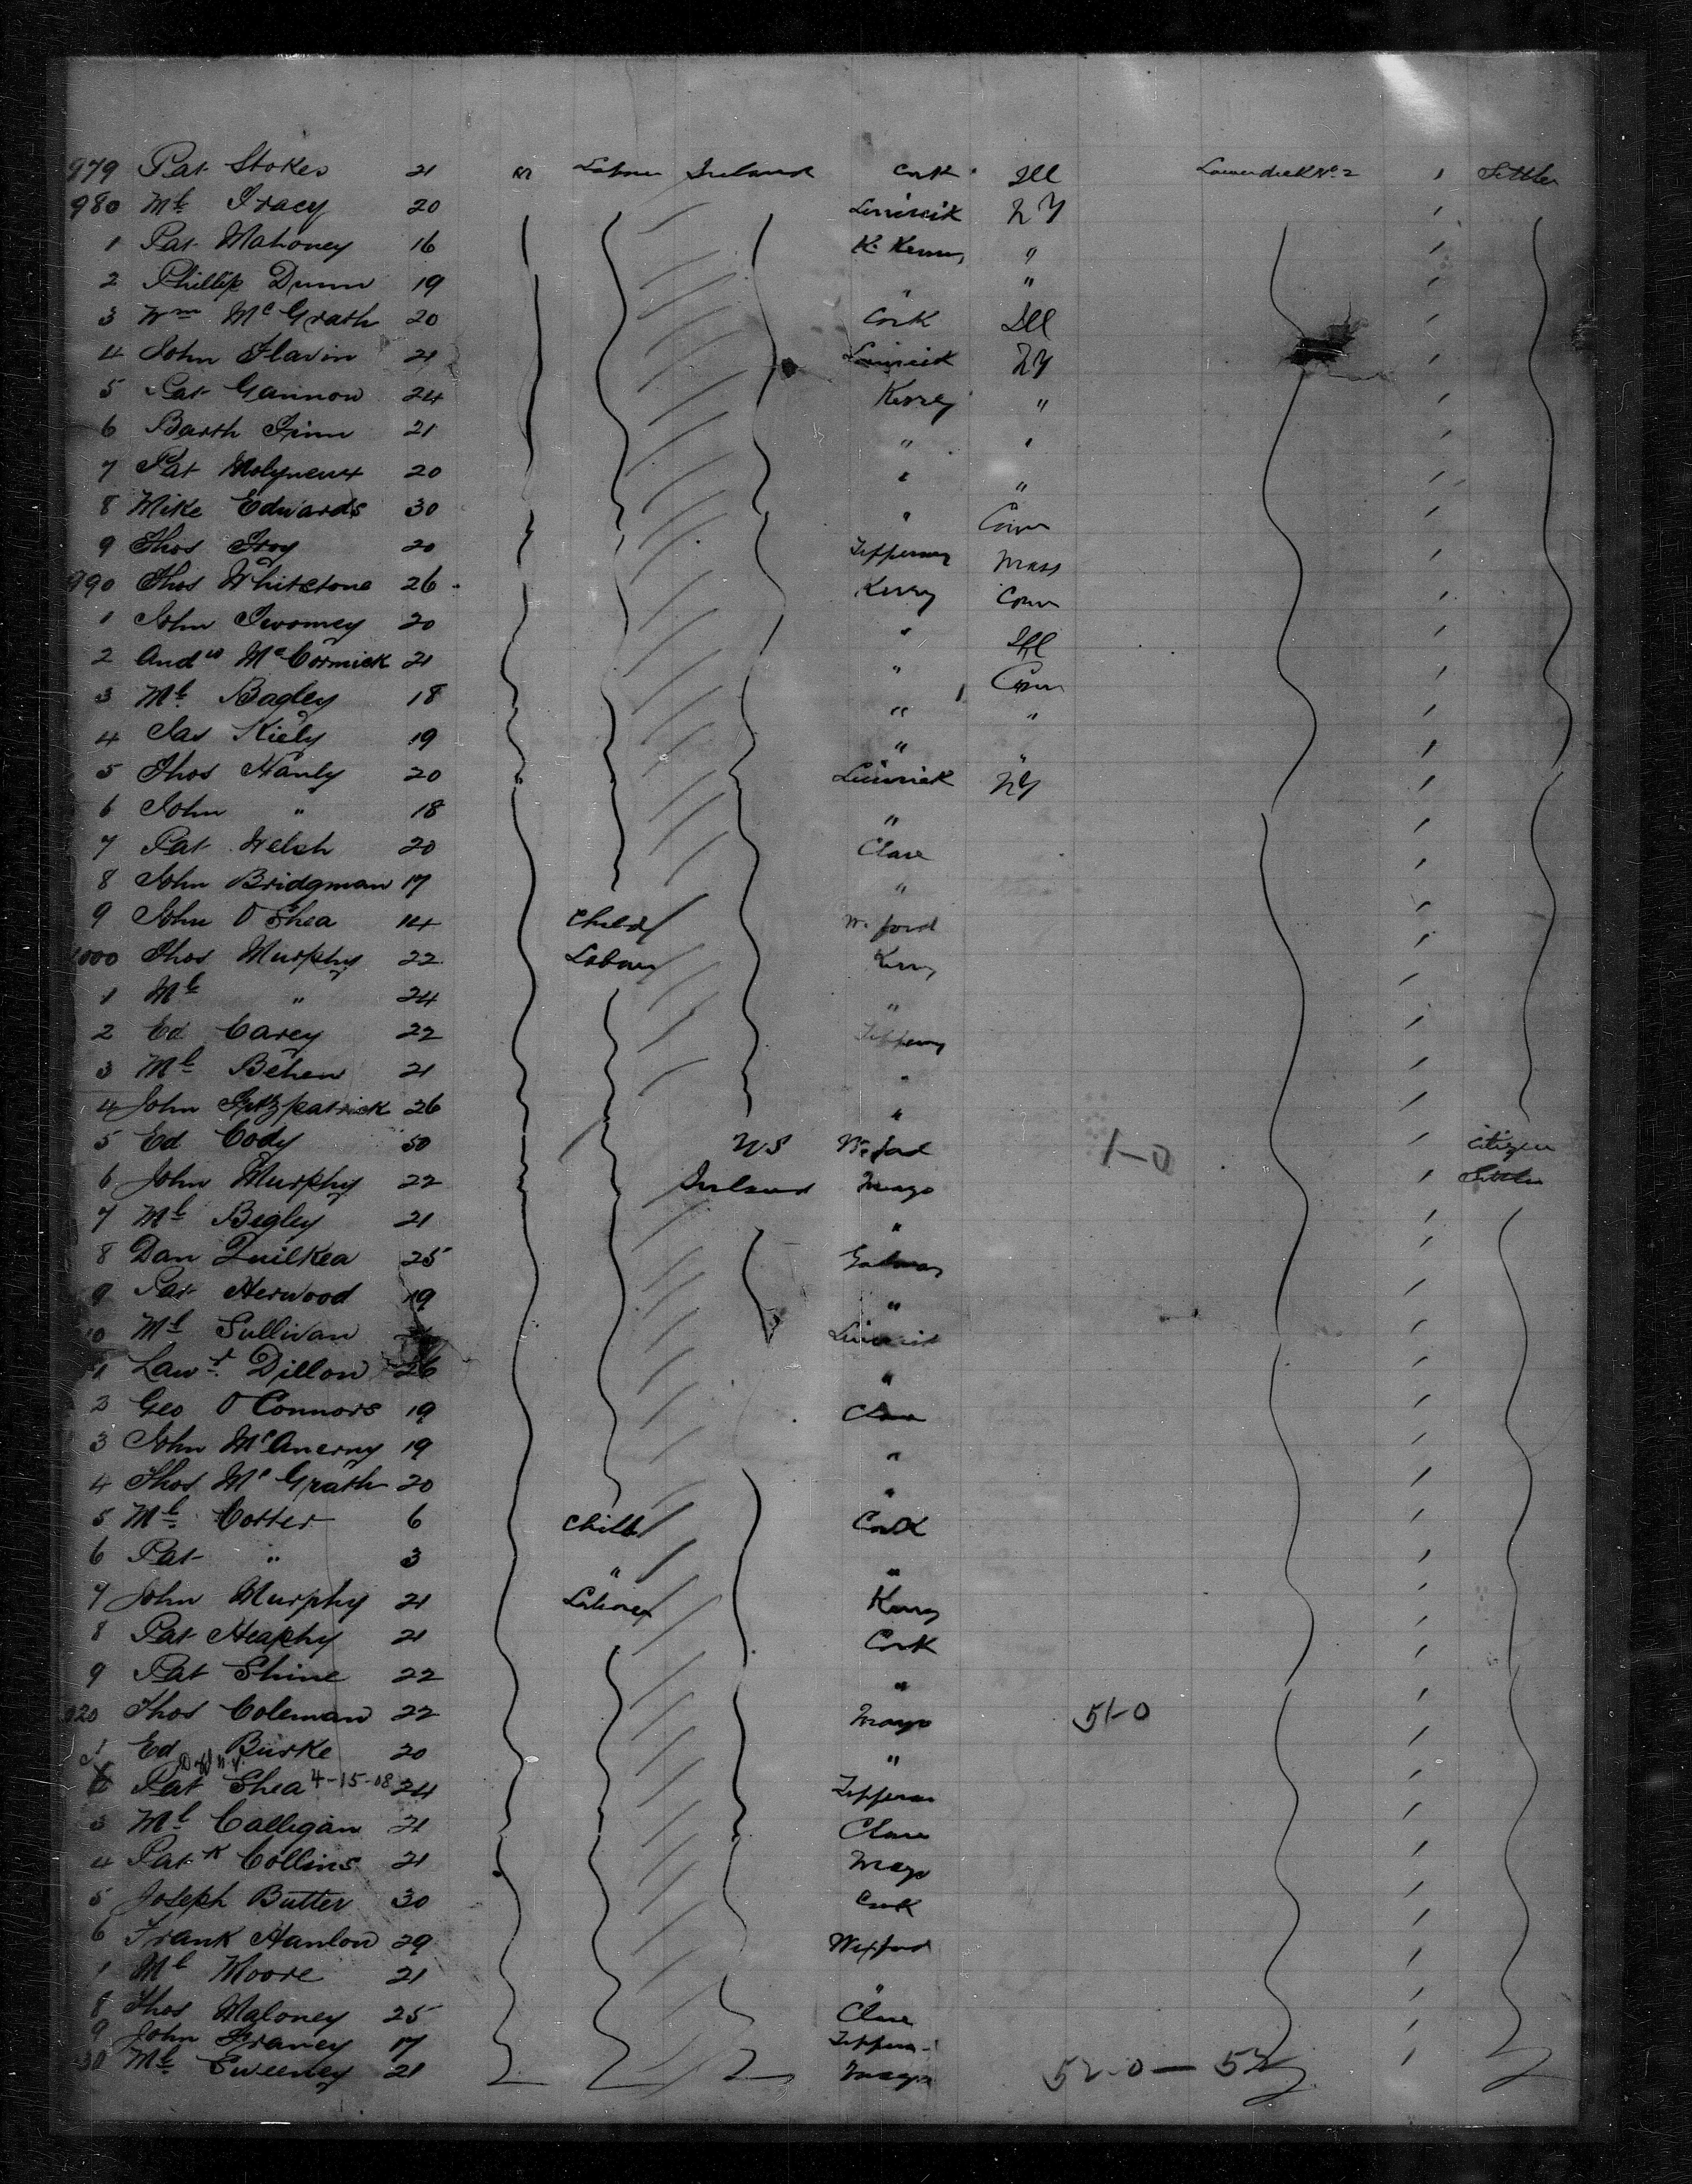 979 Pat Stokes 21 m Labour Ireland Cork Ill Lower deck No. 2 Settler
980 Ml Tracy 20 Limerick NY
1 Pat Mahoney 16 K. Kenny "
2 Phillip Dunn 19 " "
3 Wm McGrath 20 Cork Ill
4 John Flavin 21 Limerick NY
5 Pat Gannon 24 Kerry "
6 Barth Finn 21 " "
7 Pat Molyneux 20 " "
8 Mike Edwards 30 " Conn
9 Thos Troy 20 Tipperary Mass
990 Thos Whitstone 26 Kerry Conn
1 John Twomey 20 " Ill
2 Andw McCormick 21 " Conn
3 Ml Bagley 18 " "
4 Jas Kiely 19 " "
5 Thos Hanly 20 Limerick NY
6 John " 18 "
7 Pat Welsh 20 Clare
8 John Bridgman 17 "
9 John O'Shea 14 Child W. ford
1000 Thos Murphy 22 Labour Kerry
1 Ml " 24 "
2 Ed Carey 22 Tipperary
3 Ml Behen 21 "
4 John Fitzpatrick 26 "
5 Ed Cody 50 US W. ford 1-0 Citizen
6 John Murphy 22 Ireland Mayo Settler
7 Ml Begley 21 "
8 Dan Quilkea 25 Galway
9 Pat Herwood 19 "
10 Ml Sullivan Limerick
1 Lawr. Dillon 26 "
2 Geo O'Connors 19 Clare
3 John McAnerny 19 "
4 Thos McGrath 20 "
5 Ml Cotter 6 Child Cork
6 Pat " 3 " "
7 John Murphy 21 Labour Kerry
8 Pat Heaphy 21 Cork
9 Pat Shine 22 "
020 Thos Coleman 22 Mayo 51-0
1 Ed Burke 20 "
2 Pat Shea 4-15-08 24 Tipperary
3 Ml Calligan 21 Clare
4 Patk Collins 21 Mayo
5 Joseph Butter 30 Cork
6 Frank Hanlon 29 Wexford
7 Ml Moore 21 "
8 Thos Maloney 25 Clare
9 John Franey 17 Tipperary
30 Ml Sweeney 21 Mayo 52-0 — 52